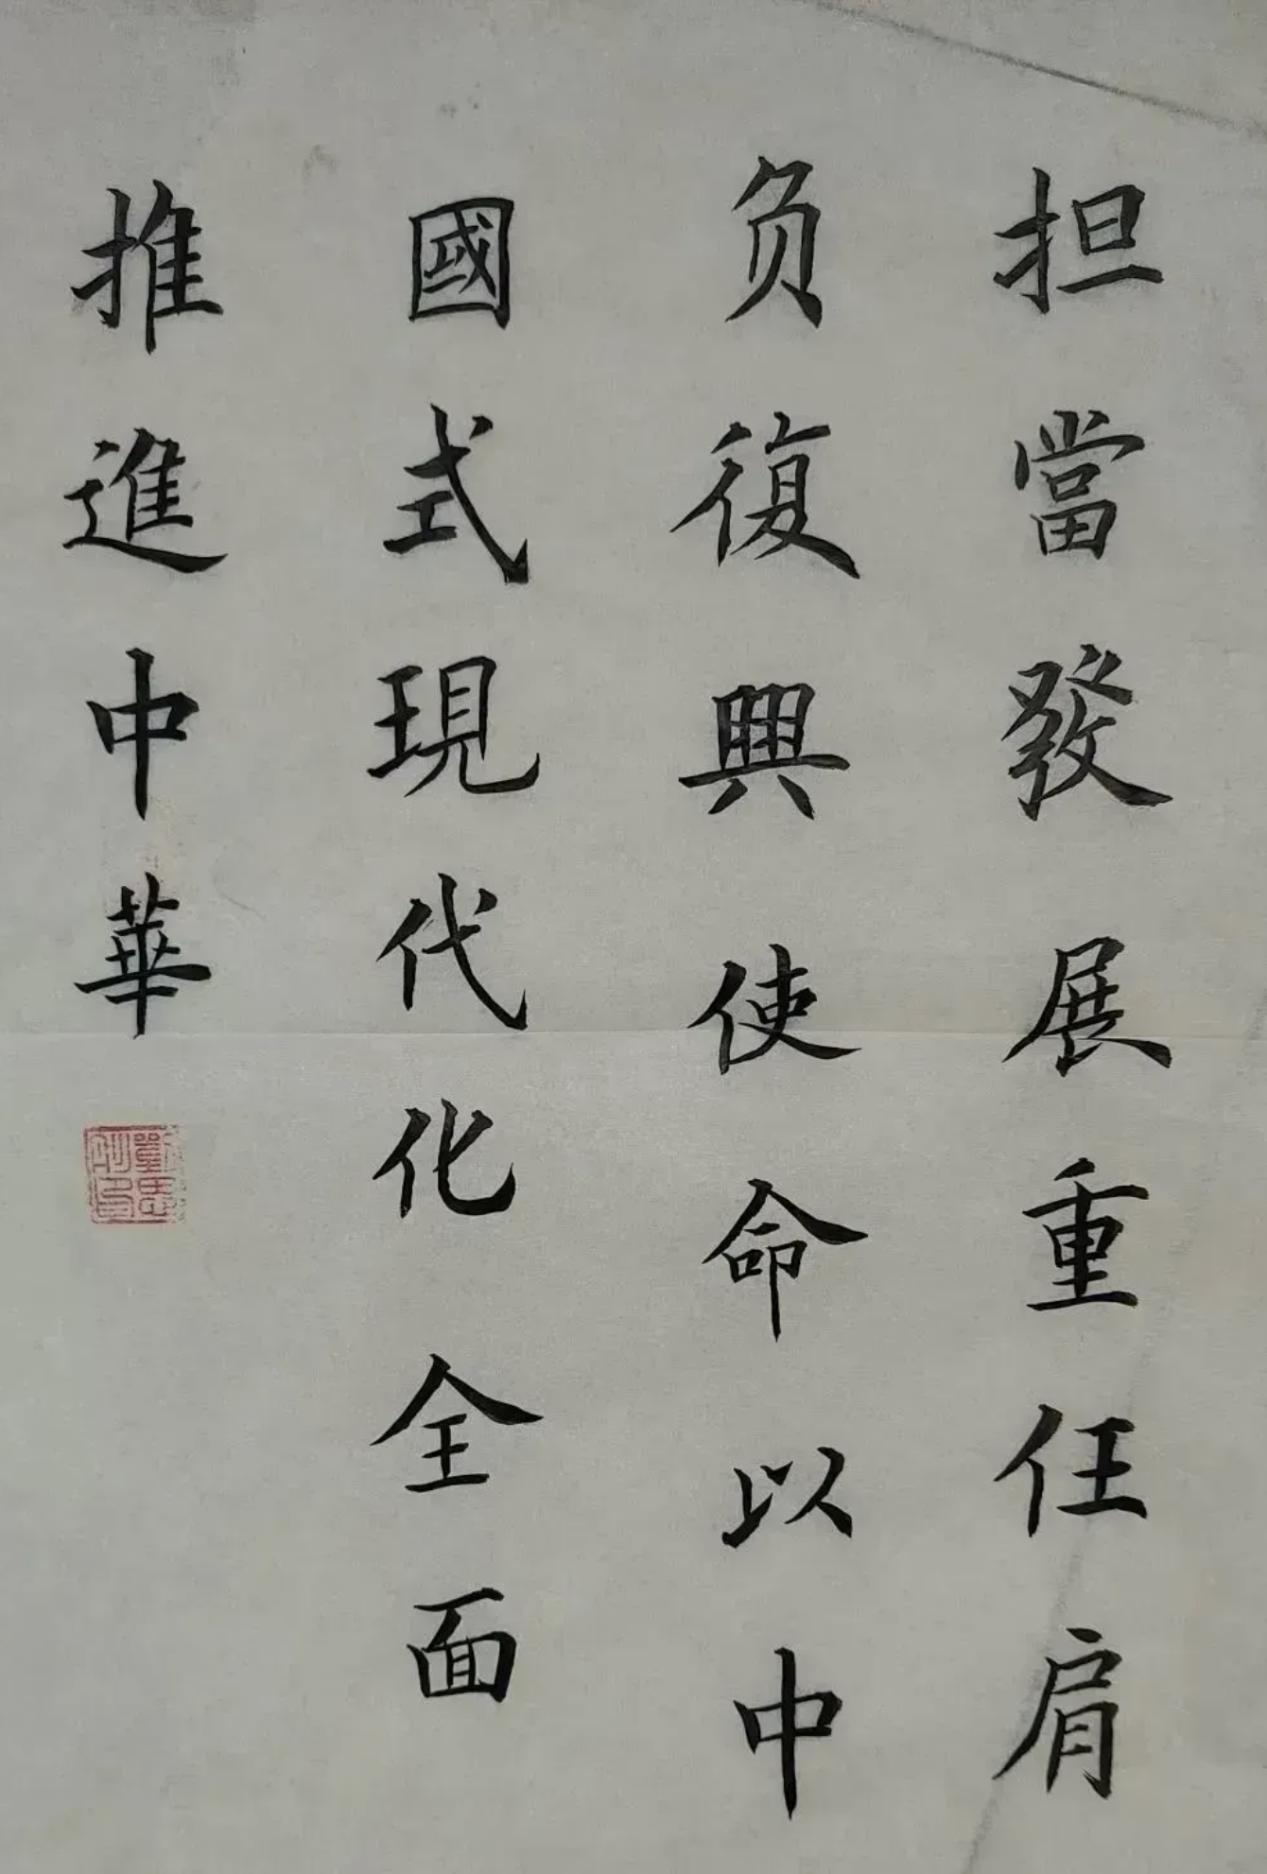 担當發展重任肩
负復興使命以中
國式現代化全面
推進中華